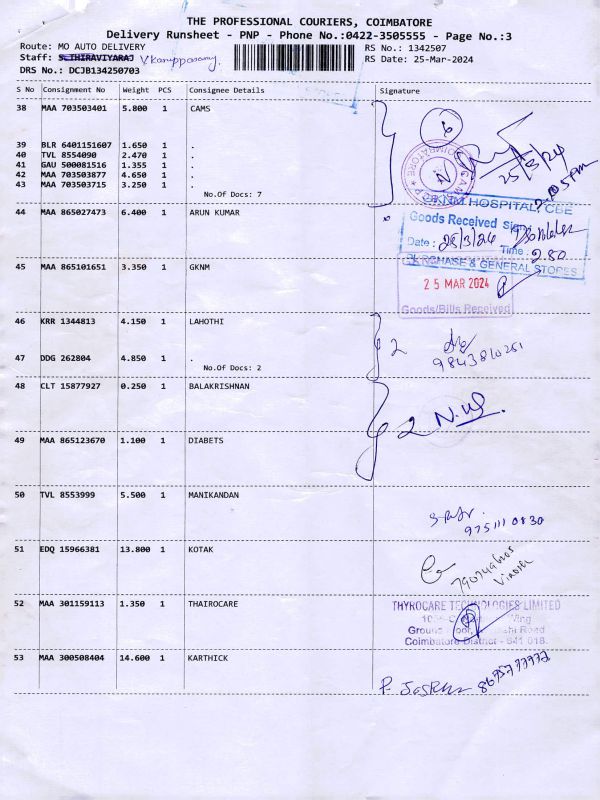 THE PROFESSIONAL COURIERS, COIMBATORE
Delivery Runsheet - PNP - Phone No.:0422-3505555 - Page No.:3
Route: MO AUTO DELIVERY
RS No.: 1342507
Staff: S.THIRAVIYARAJ V.Karuppasamy
RS Date: 25-Mar-2024
DRS No.: DCJB134250703
S No Consignment No Weight PCS Consignee Details Signature
38 MAA 703503401 5.800 1 CAMS
6
25/3/24
39 BLR 6401151607 1.650 1 .
40 TVL 8554090 2.470 1 .
41 GAU 500081516 1.355 1 .
42 MAA 703503877 4.650 1 .
43 MAA 703503715 3.250 1 .
No.Of Docs: 7
44 MAA 865027473 6.400 1 ARUN KUMAR
GKNM HOSPITAL, CBE
Goods Received
Date : Time : 2.50
PURCHASE & GENERAL STORES
45 MAA 865101651 3.350 1 GKNM
25 MAR 2024
Goods/Bills Received
46 KRR 1344813 4.150 1 LAHOTHI
2
47 DDG 262804 4.850 1 .
No.Of Docs: 2
48 CLT 15877927 0.250 1 BALAKRISHNAN
2
49 MAA 865123670 1.100 1 DIABETS
50 TVL 8553999 5.500 1 MANIKANDAN
9751110830
51 EDQ 15966381 13.800 1 KOTAK
52 MAA 301159113 1.350 1 THAIROCARE
THYROCARE TECHNOLOGIES LIMITED
Wing
Ground Floor, Road
Coimbatore District - 641 018.
53 MAA 300508404 14.600 1 KARTHICK